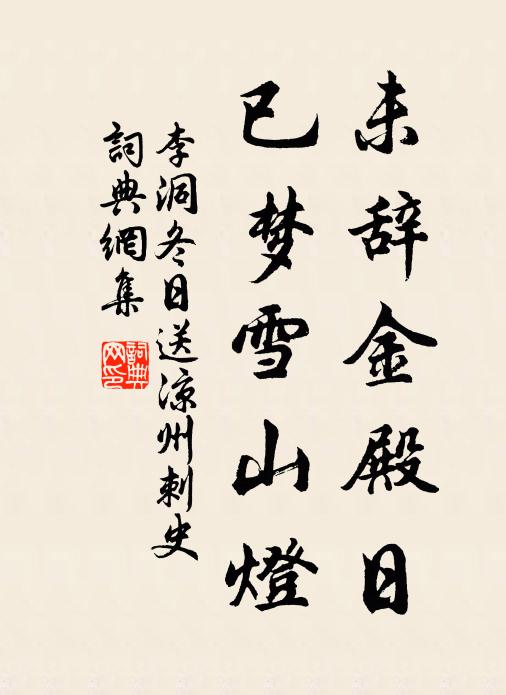 未辞金殿日
已梦雪山燈
李洞冬日送凉州刺史
詞典網集
詞典网印